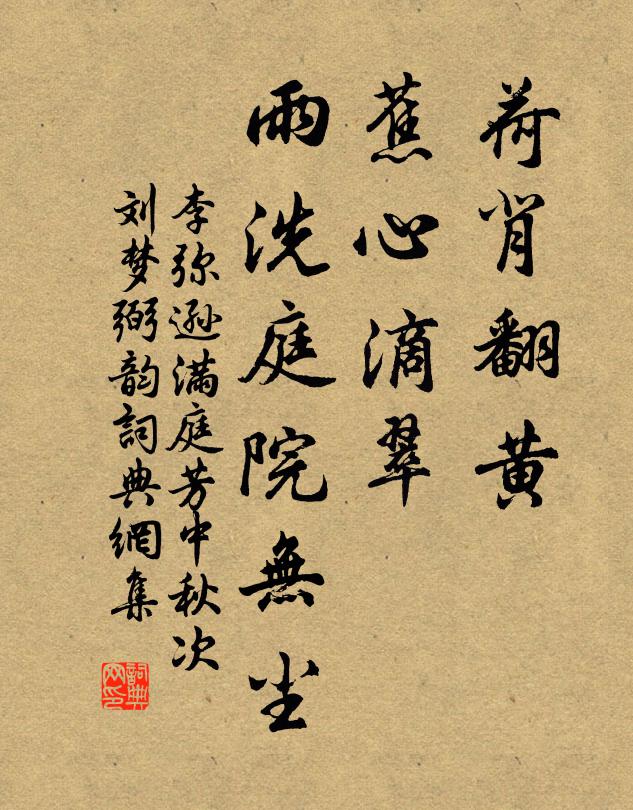 荷背翻黄
蕉心滴翠
雨洗庭院無尘
李弥遜满庭芳中秋次
刘梦弼韵詞典網集
詞典网印